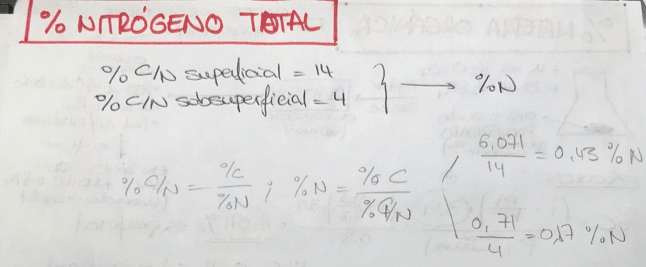 % NITRÓGENO TOTAL
% C/N superficial = 14
% C/N subsuperficial = 4
→ %N
% C/N = %C / %N ; %N = %C / %C/N
6,071 / 14 = 0,43 % N
0,71 / 4 = 0,17 % N